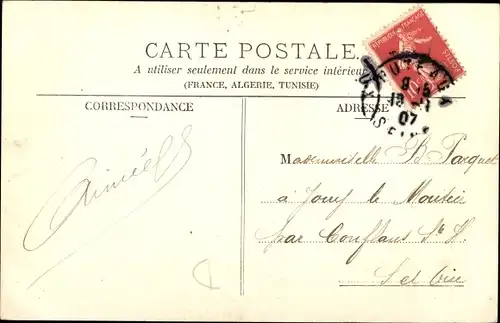 CARTE POSTALE.
A utiliser seulement dans le service intérieur
(FRANCE, ALGERIE, TUNISIE)
CORRESPONDANCE
ADRESSE
REPUBLIQUE FRANÇAISE
POSTES
10
PUTEAUX
8
07
SEINE
Aimée
Mademoiselle B Parquet
à Jouy le Moutier
par Conflans Ste H.
S et Oise